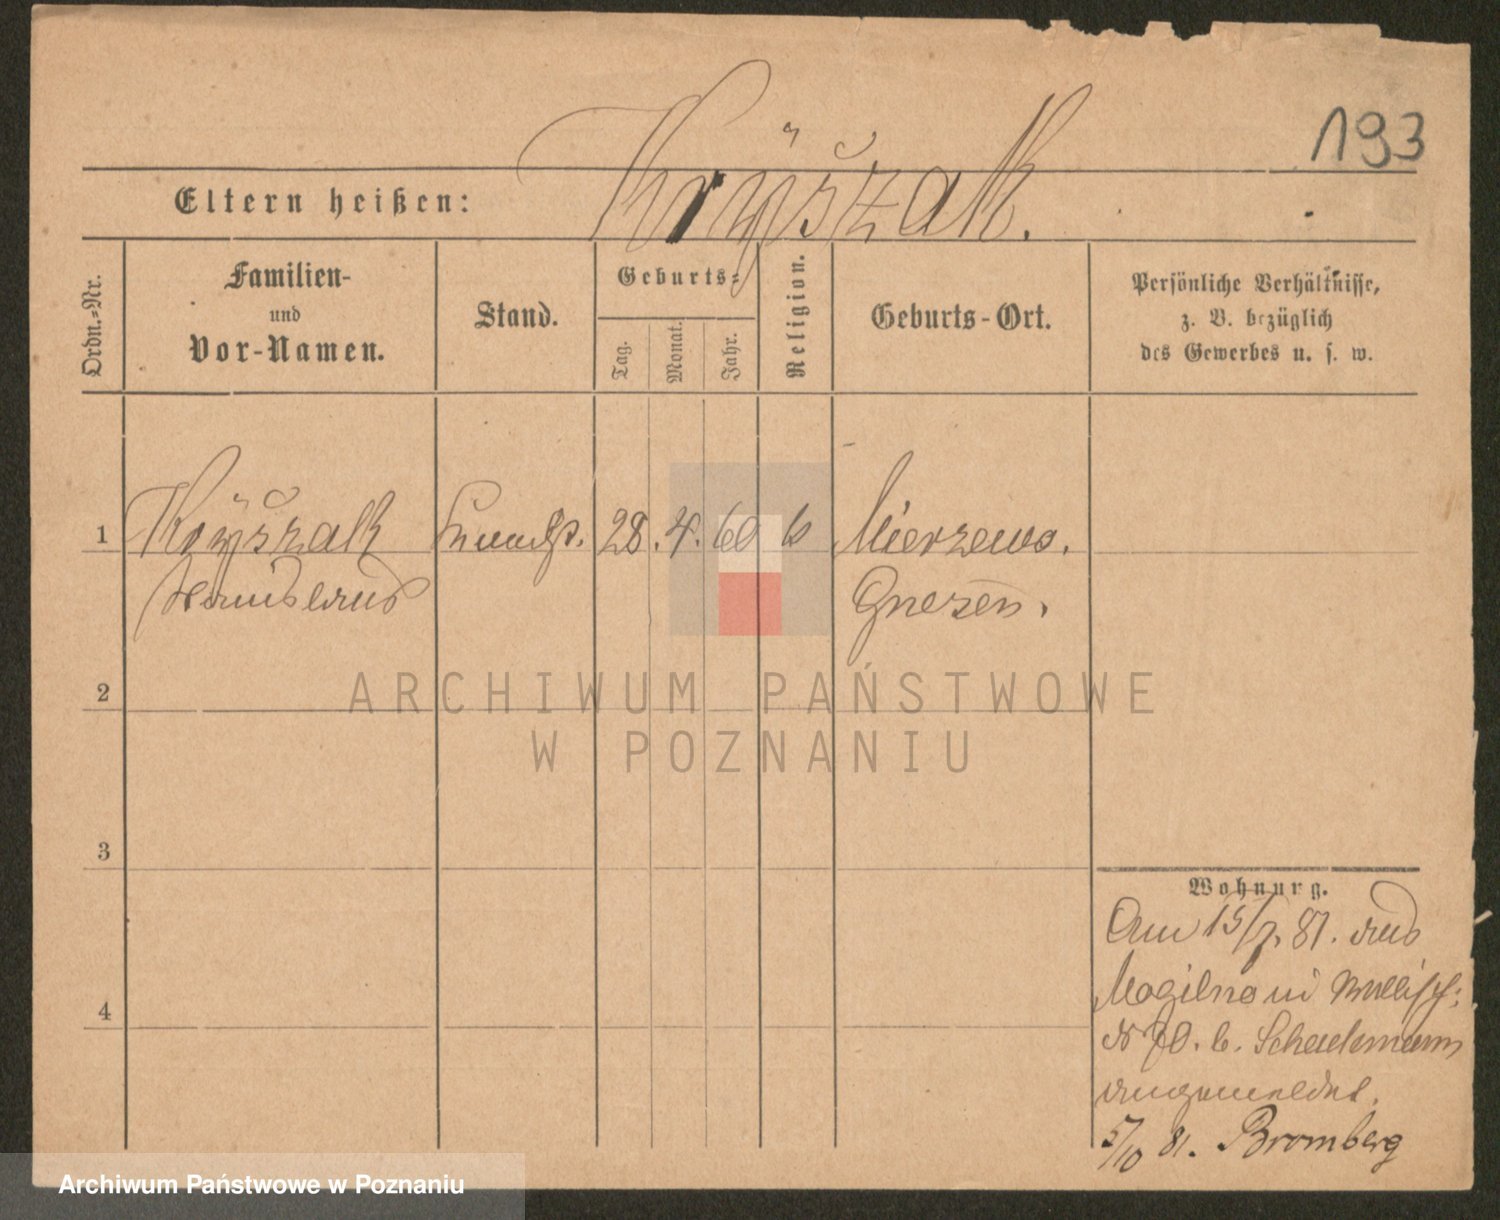 193
Kryszak.
Eltern heißen:
Ordn.-Nr.
Familien-
und
Vor-Namen.
Stand.
Geburts-
Tag.
Monat.
Jahr.
Religion.
Geburts-Ort.
Persönliche Verhältnisse,
z. B. bezüglich
des Gewerbes u. s. w.
1
Kryszak
28. 4. 60
Mierzewo.
Stanislaus
Gnezen.
2
ARCHIWUM PAŃSTWOWE
W POZNANIU
3
4
Wohnung.
Am 15/7. 81. aus
Mogilno in
No 70. b.
angemeldet.
5/10 81. Bromberg
Archiwum Państwowe w Poznaniu